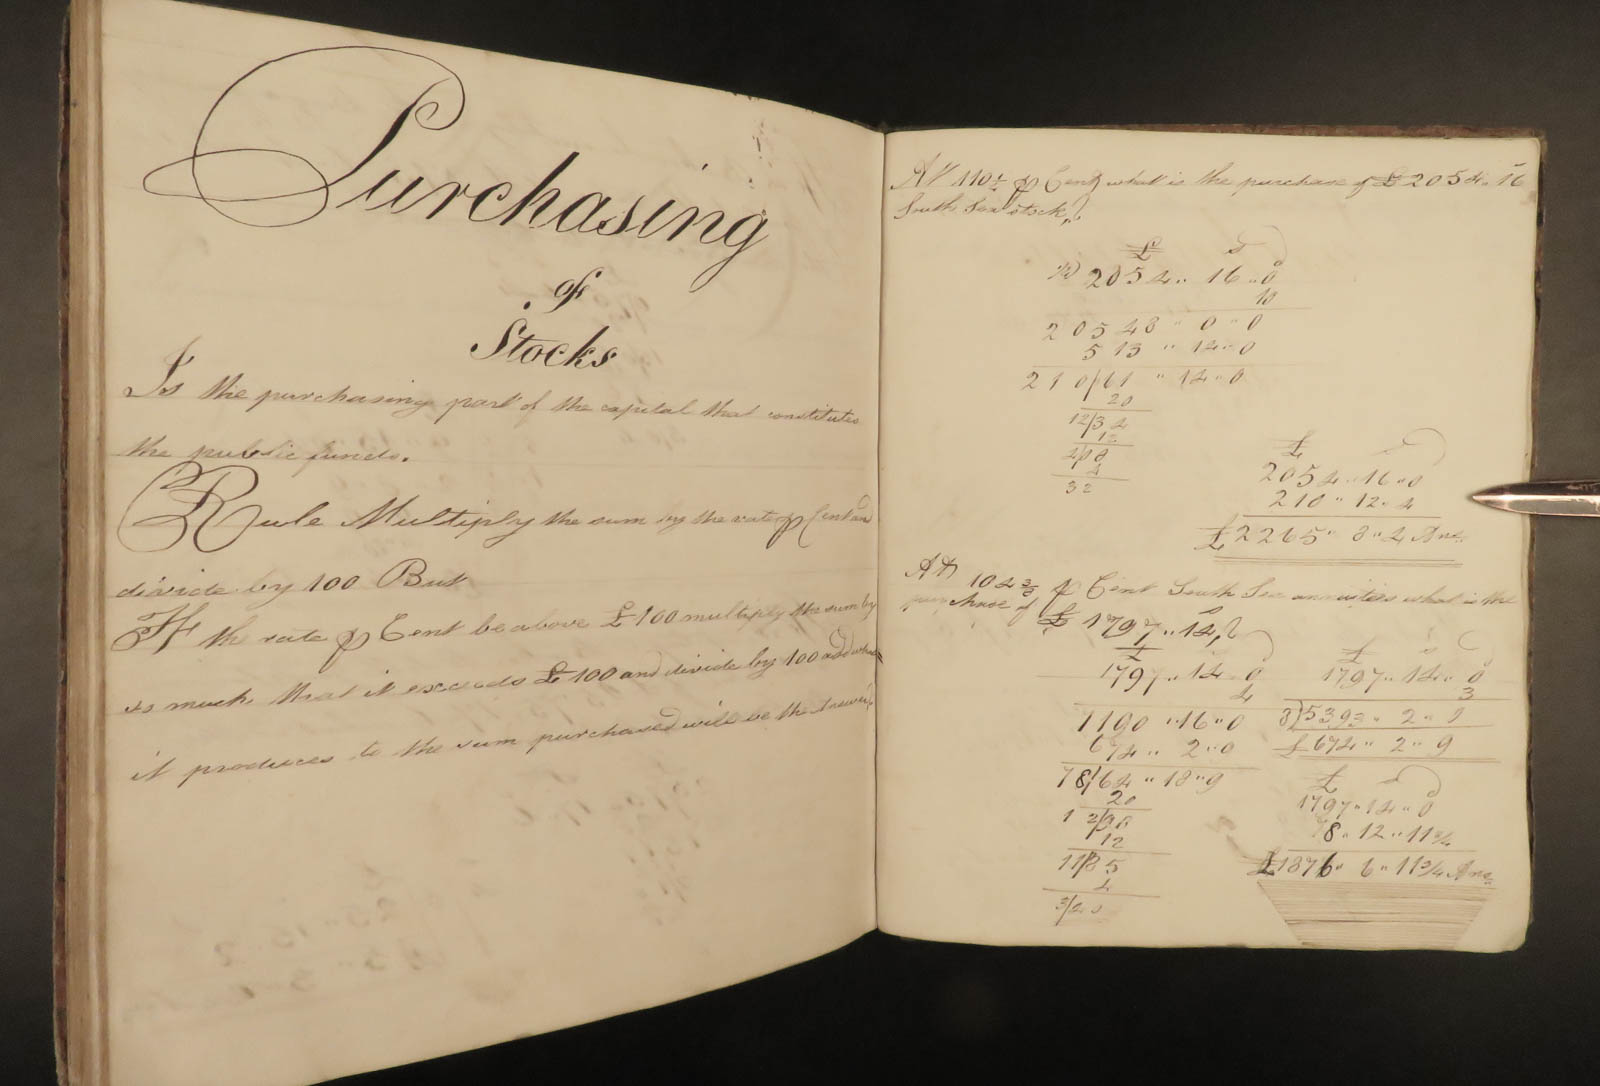 Purchasing
of
Stocks
Is the purchasing part of the capital that constitutes
the public funds.
Rule Multiply the sum by the rate ⅌ Cent and
divide by 100 But
If the rate ⅌ Cent be above £100 multiply the sum by
as much that it exceeds £100 and divide by 100 add what
it produces to the sum purchased will be the Answer
At 110¼ ⅌ Cent what is the purchase of £2054.. 16
South Sea stock,?
£ s d
¼) 2054.. 16 .. 0
10
20548 .. 0 .. 0
513 .. 14 .. 0
210/61 .. 14 .. 0
20
12/34
12
4/08
4
32
£ s d
2054.. 16 .. 0
210 .. 12 .. 4
£2265 .. 8 .. 4 Ans.
At 104⅜ ⅌ Cent South Sea annuities what is the
purchase of £1797 .. 14,?
£ s d
1797 .. 14 .. 0
4
7190 .. 16 .. 0
674 .. 2 .. 0
78/64 .. 18 .. 9
20
12/98
12
11/85
4
3/40
£ s d
1797 .. 14 .. 0
3
8)5393 .. 2 .. 9
£674 .. 2 .. 9
£ s d
1797 .. 14 .. 0
78 .. 12 .. 11¾
£1876 .. 6 .. 11¾ Ans.